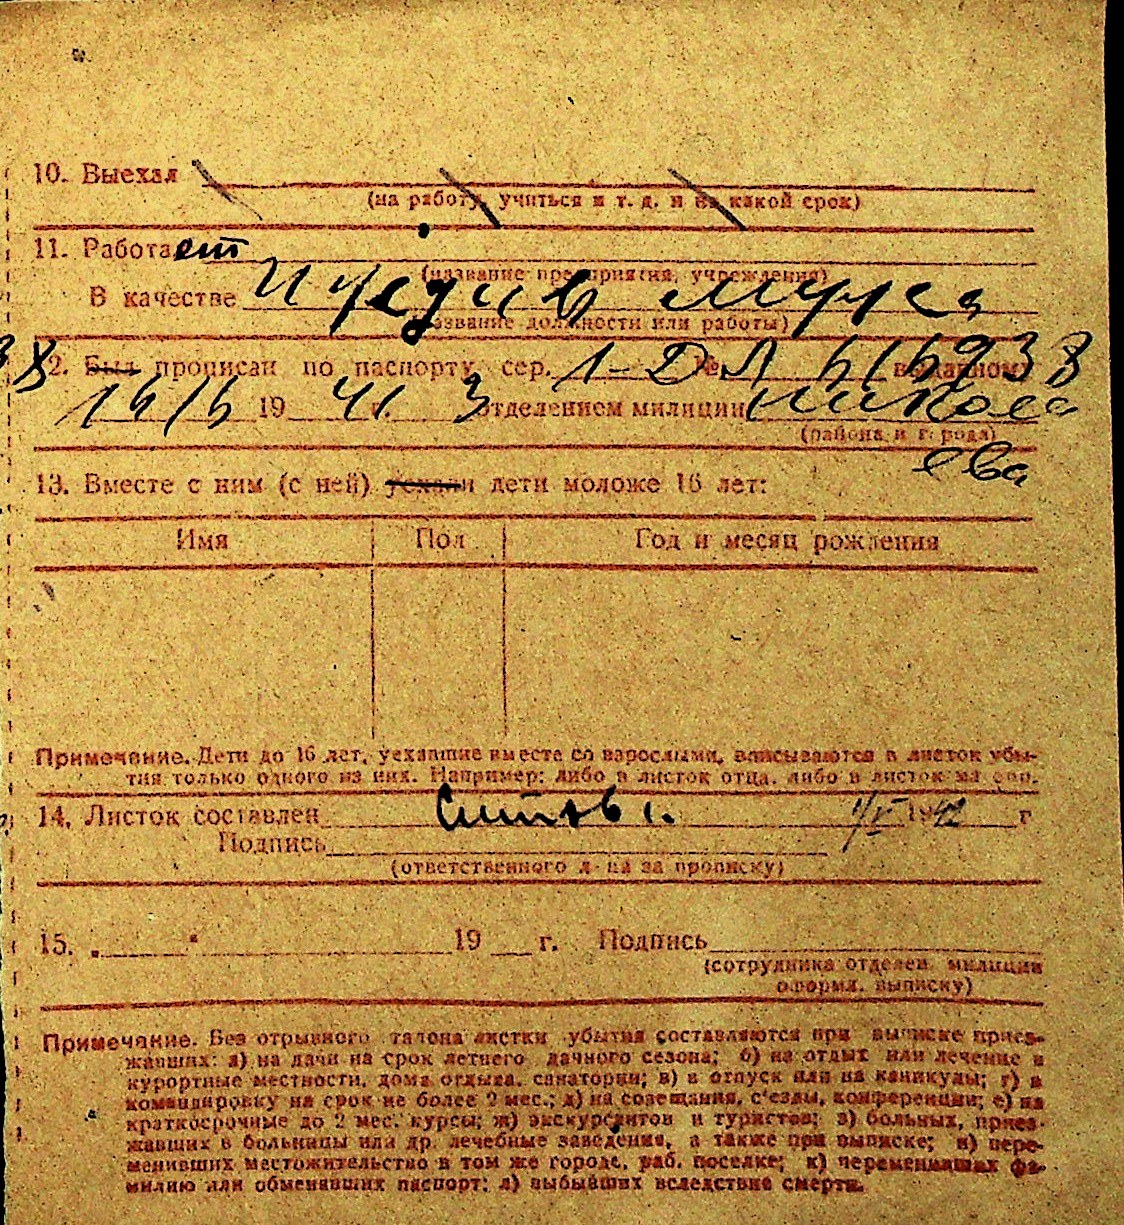 10. Выехал
(на работу, учиться и т. д. и на какой срок)
11. Работает
(название предприятия, учреждения)
В качестве иждив мужа
(название должности или работы)
12. Был прописан по паспорту сер. 1-ДЛ № 616938 выданному
16/6 1941 г. 3 отделением милиции Никола
(района и города)
ева
13. Вместе с ним (с ней) уехали дети моложе 16 лет:
Имя Пол Год и месяц рождения
Примечание. Дети до 16 лет, уехавшие вместе со взрослыми, вписываются в листок убы-
тия только одного из них. Например: либо в листок отца, либо в листок матери.
14. Листок составлен 1942 г
Подпись
(ответственного л-ца за прописку)
15. „ " 19 г. Подпись
(сотрудника отделен. милиции
оформл. выписку)
Примечание. Без отрывного талона листки убытия составляются при выписке приез-
жавших: а) на дачи на срок летнего дачного сезона; б) на отдых или лечение в
курортные местности, дома отдыха, санатории; в) в отпуск или на каникулы; г) в
командировку на срок не более 2 мес.; д) на совещания, с'езды, конференции; е) на
краткосрочные до 2 мес. курсы; ж) экскурсантов и туристов; з) больных, приез-
жавших в больницы или др. лечебные заведения, а также при выписке; и) пере-
менивших местожительство в том же городе, раб. поселке; к) переменивших фа-
милию или обменявших паспорт; л) выбывших вследствие смерти.